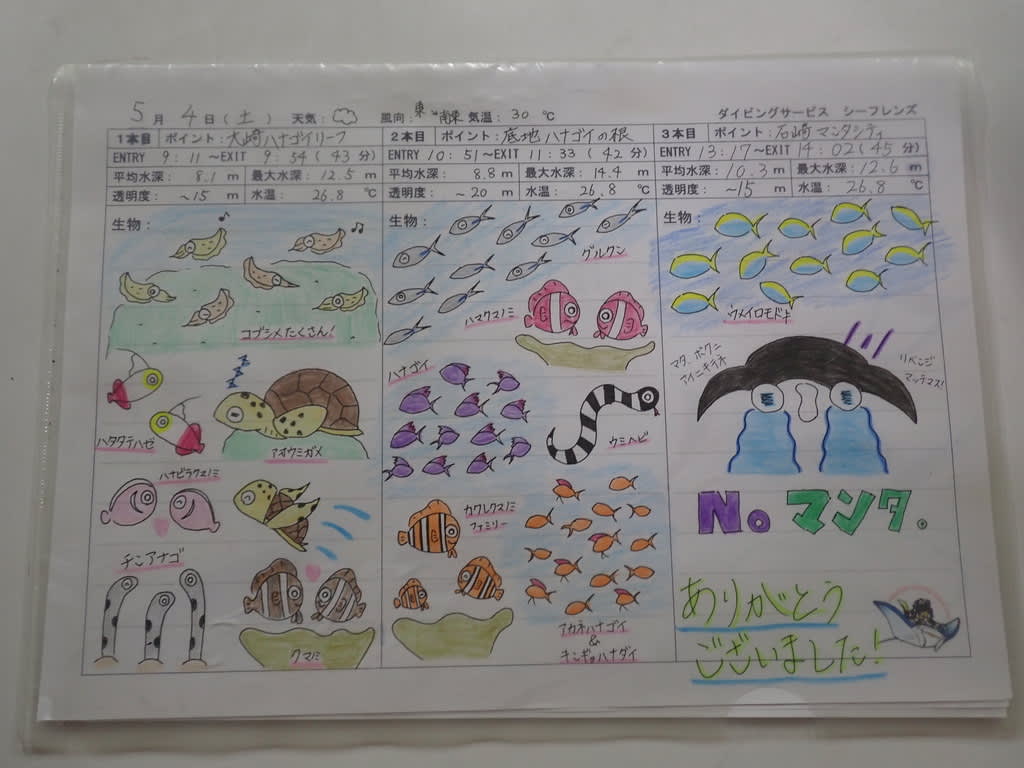 5月 4日(土) 天気: 風向:東~南東 気温:30℃ ダイビングサービス シーフレンズ
1本目 ポイント:大崎ハナゴイリーフ
ENTRY 9:11~EXIT 9:54(43分)
平均水深: 8.1 m 最大水深: 12.5 m
透明度: ~15 m 水温: 26.8 ℃
生物:
コブシメたくさん!
ハタタテハゼ
アオウミガメ
ハナビラクマノミ
チンアナゴ
クマノミ
2本目 ポイント:底地ハナゴイの根
ENTRY 10:51~EXIT 11:33(42分)
平均水深: 8.8 m 最大水深: 14.4 m
透明度: ~20 m 水温: 26.8 ℃
生物:
グルクン
ハマクマノミ
ハナゴイ
ウミヘビ
カクレクマノミ
ファミリー
アカネハナゴイ
&
キンギョハナダイ
3本目 ポイント:石崎マンタシティ
ENTRY 13:17~EXIT 14:02(45分)
平均水深: 10.3 m 最大水深: 12.6 m
透明度: ~15 m 水温: 26.8 ℃
生物:
ウメイロモドキ
マタ、ボクニ
アイニキテネ
リベンジ
マッテマス!
No マンタ.
ありがとう
ございました!